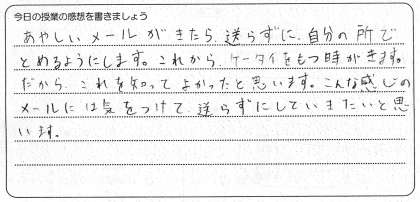 今日の授業の感想を書きましょう
あやしいメールがきたら、送らずに、自分の所で
とめるようにします。これから、ケータイをもつ時がきます。
だから、これを知ってよかったと思います。こんな感じの
メールには気をつけて、送らずにしていきたいと思
います。